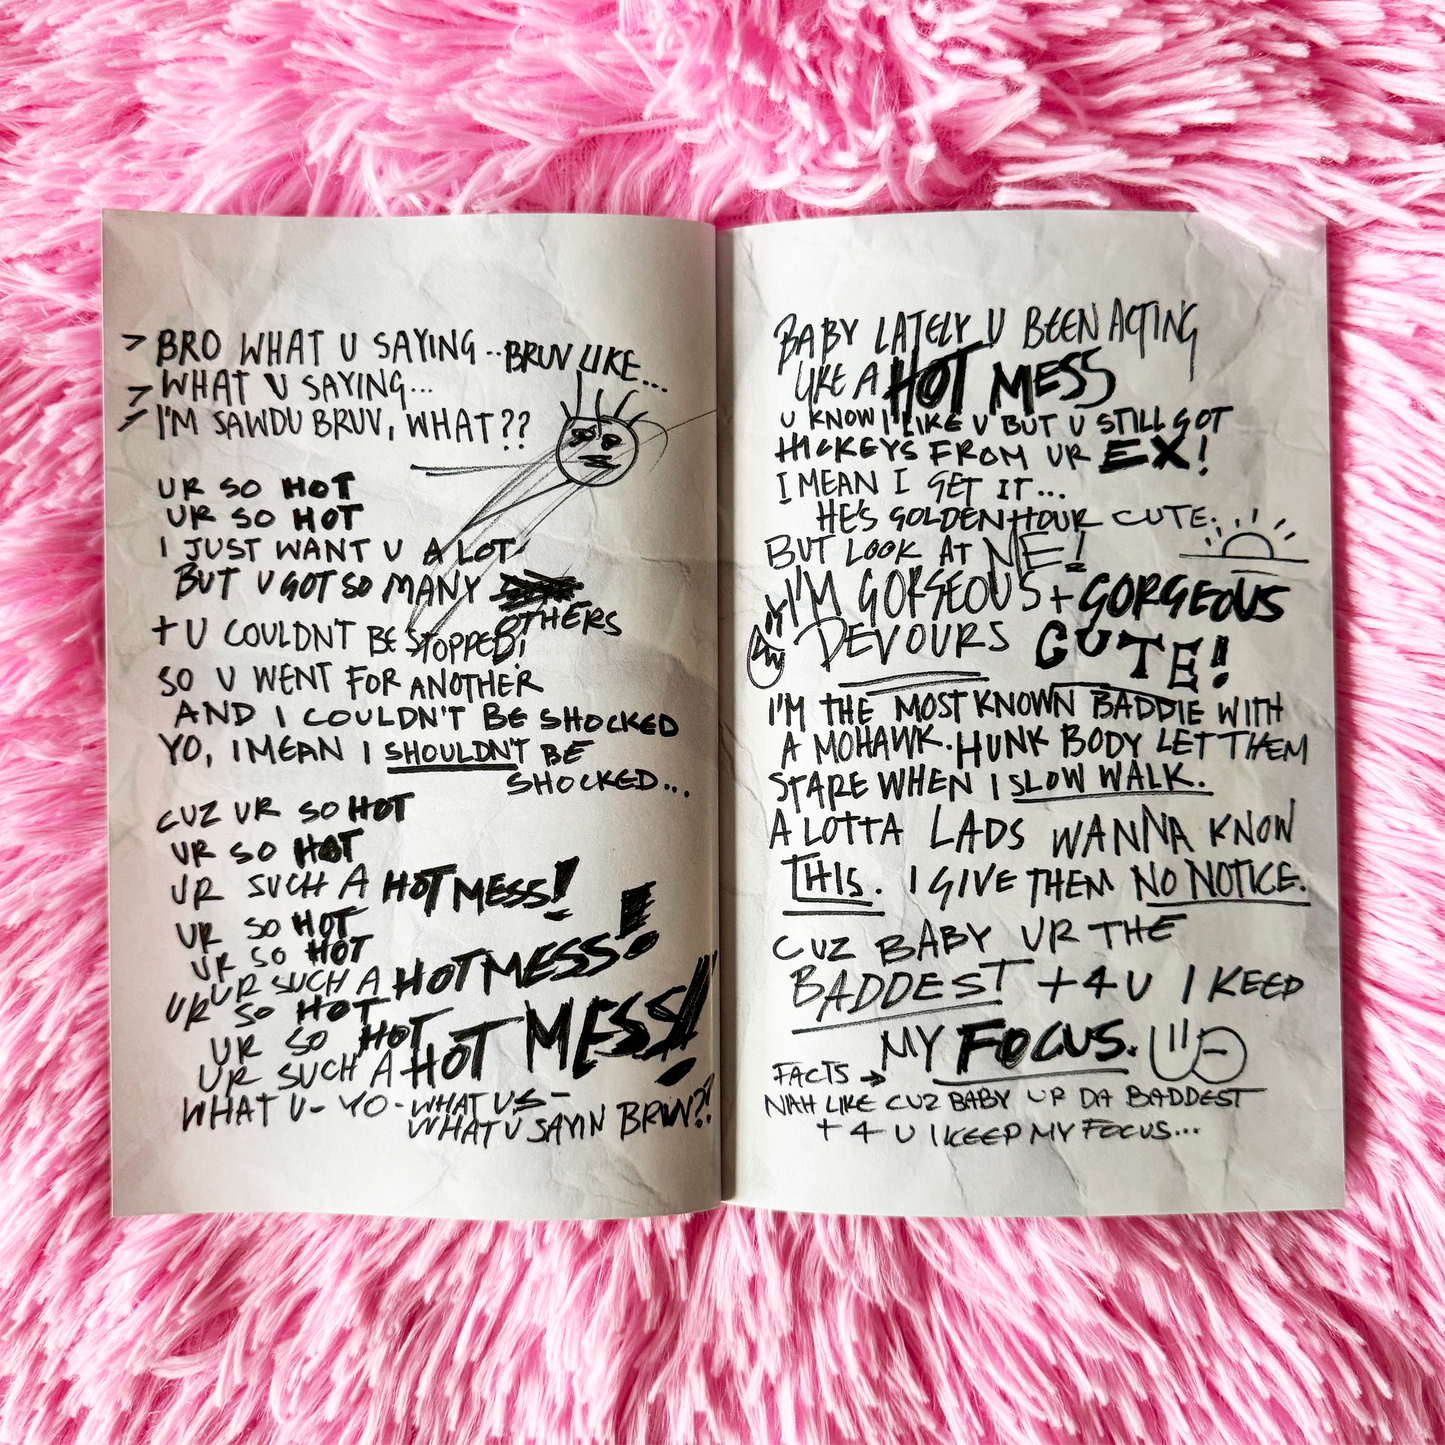 > BRO WHAT U SAYING.. BRUV LIKE...
> WHAT U SAYING...
> I'M SAWDU BRUV, WHAT??
UR SO HOT
UR SO HOT
I JUST WANT U A LOT
BUT U GOT SO MANY
OTHERS
+ U COULDN'T BE STOPPED!
SO U WENT FOR ANOTHER
AND I COULDN'T BE SHOCKED
YO, I MEAN I SHOULDN'T BE
SHOCKED...
CUZ UR SO HOT
UR SO HOT
UR SUCH A HOT MESS!
UR SO HOT
UR SO HOT
UR SUCH A HOT MESS!
UR SO HOT
UR SO HOT
UR SUCH A HOT MESS!
WHAT U- YO- WHAT U S-
WHAT U SAYIN BRUV??
BABY LATELY U BEEN ACTING
LIKE A HOT MESS
U KNOW I LIKE U BUT U STILL GOT
HICKEYS FROM UR EX!
I MEAN I GET IT...
HE'S GOLDEN HOUR CUTE.
BUT LOOK AT ME!
I'M GORGEOUS + GORGEOUS
DEVOURS CUTE!
I'M THE MOST KNOWN BADDIE WITH
A MOHAWK. HUNK BODY LET THEM
STARE WHEN I SLOW WALK.
A LOTTA LADS WANNA KNOW
THIS. I GIVE THEM NO NOTICE.
CUZ BABY UR THE
BADDEST + 4 U I KEEP
MY FOCUS.
FACTS →
NAH LIKE CUZ BABY UR DA BADDEST
+ 4 U I KEEP MY FOCUS...